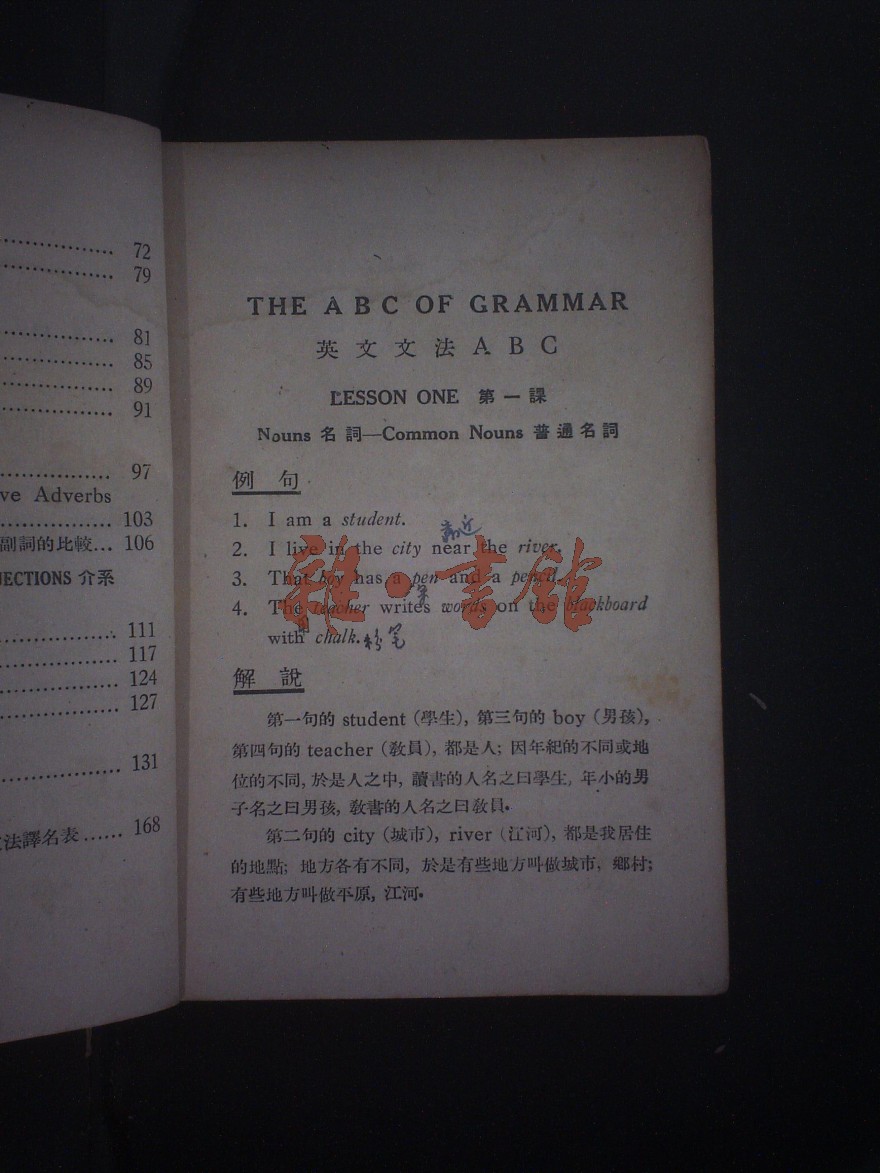 72
79
81
85
89
91
97
ve Adverbs
103
副詞的比較... 106
JECTIONS 介系
111
117
124
127
131
法譯名表...... 168
THE A B C OF GRAMMAR
英文文法 A B C
LESSON ONE 第一課
Nouns 名詞—Common Nouns 普通名詞
例句
1. I am a student.
2. I live in the city near the river.
3. That boy has a pen and a pencil.
4. The teacher writes words on the blackboard
with chalk. 粉笔
雜·書館
解說
第一句的 student (學生), 第三句的 boy (男孩),
第四句的 teacher (敎員), 都是人; 因年紀的不同或地
位的不同, 於是人之中, 讀書的人名之曰學生, 年小的男
子名之曰男孩, 敎書的人名之曰敎員.
第二句的 city (城市), river (江河), 都是我居住
的地點; 地方各有不同, 於是有些地方叫做城市, 鄉村;
有些地方叫做平原, 江河.